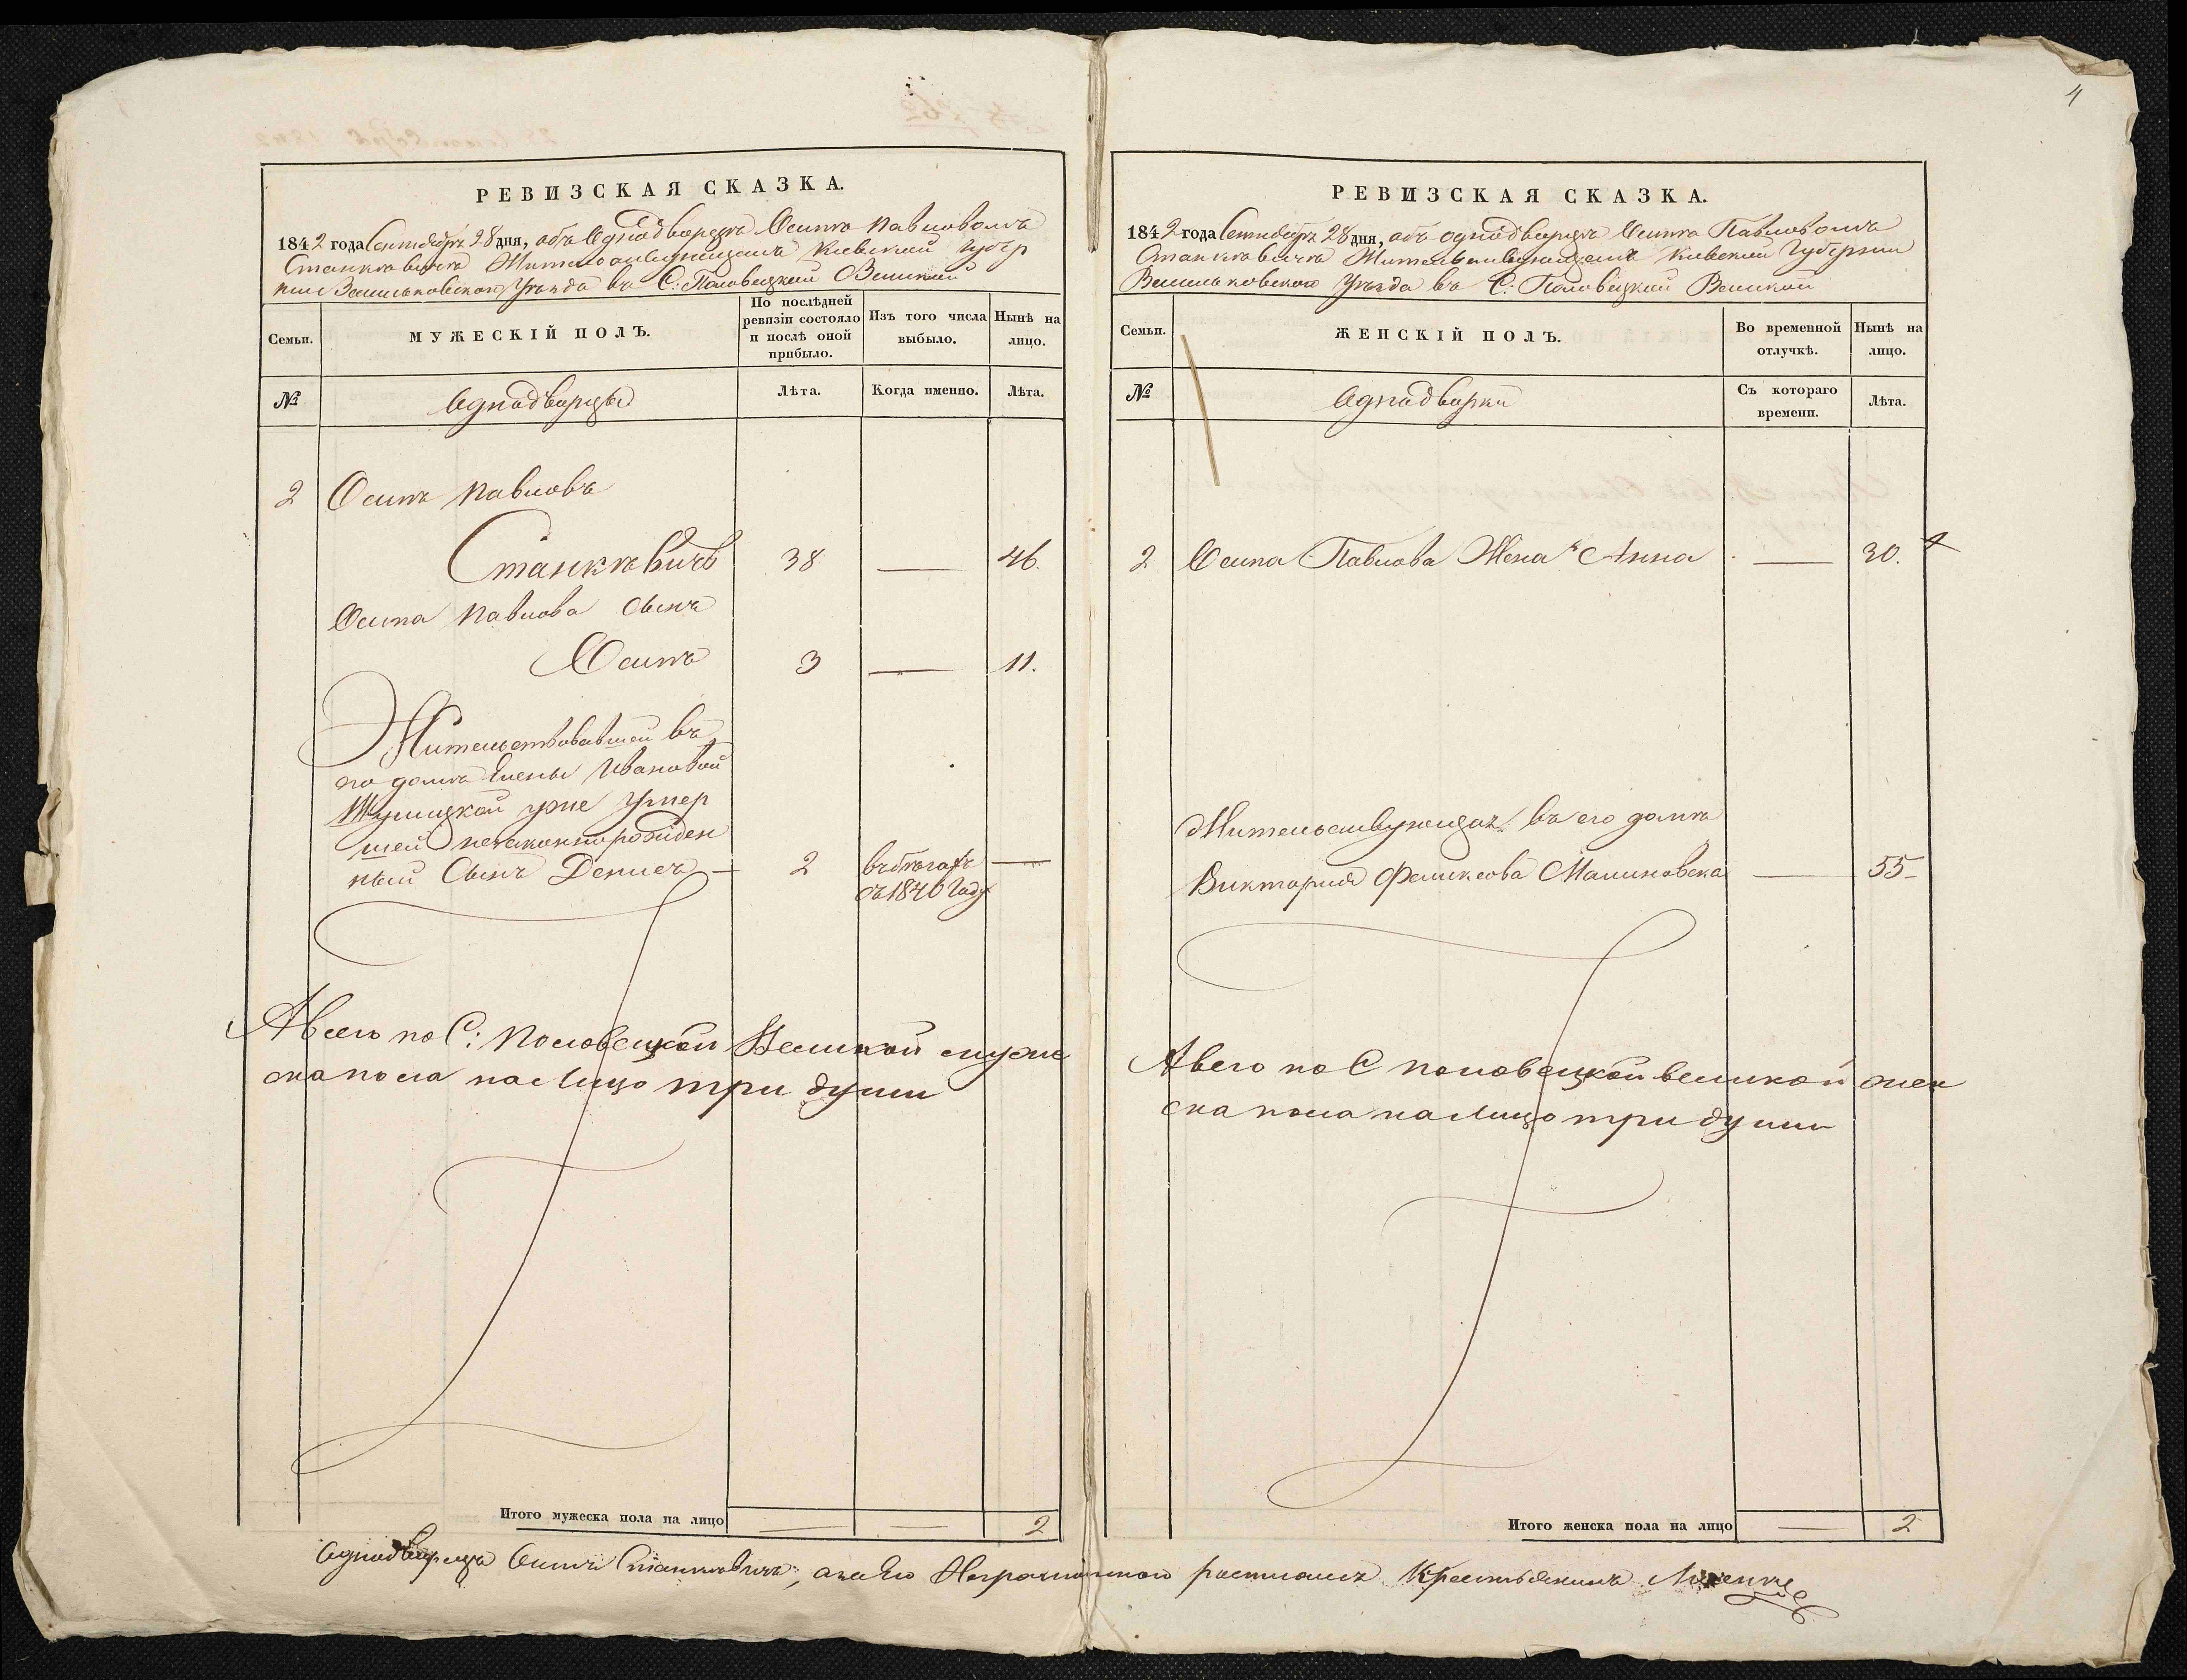 4
РЕВИЗСКАЯ СКАЗКА.
1842 года Сентября 28 дня, объ Однодворцѣ Осипѣ Павловомъ
Станкевичѣ Жительствующемъ Киевской Губер
нии Васильковского Уѣзда въ С: Половецкой Великой
Семьи.
МУЖЕСКІЙ ПОЛЪ.
По послѣдней
ревизіи состояло
и послѣ оной
прибыло.
Изъ того числа
выбыло.
Нынѣ на
лицо.
№
Однодворцы
Лѣта.
Когда именно.
Лѣта.
2 Осипъ Павловъ
Станкевичъ 38 — 46.
Осипа Павлова Сынъ
Осипъ 3 — 11.
Жительствовавшей въ
его домѣ Елены Ивановой
уже Умер
шей незаконнорожден
ный Сынъ Денисъ — 2 въ бѣгахъ —
съ 1840 Году
А всего по С: Половецкой Великой муже
ска пола на Лицо три души
Итого мужеска пола на лицо — — 2
РЕВИЗСКАЯ СКАЗКА.
1842 года Сентября 28 дня, объ однодворцѣ Осипѣ Павловомъ
Станкевичѣ Жительствующемъ Киевской Губернии
Васильковского Уѣзда въ С: Половецкой Великой
Семьи.
ЖЕНСКІЙ ПОЛЪ.
Во временной
отлучкѣ.
Нынѣ на
лицо.
№
Однодворки
Съ котораго
времени.
Лѣта.
2 Осипа Павлова Жена Анна — 30.
Жительствующая въ его домѣ
Виктория Феликсова Малиновска — 55
А всего по С Половецкой великой жен
ска пола на Лицо три души
Итого женска пола на лицо — 2
Однодворецъ Осипъ Станкевичъ, а за Его Неграмотного росписалъ Крестьянинъ